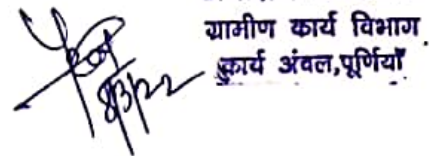 ग्रामीण कार्य विभाग
कार्य अंचल,पूर्णियाँ